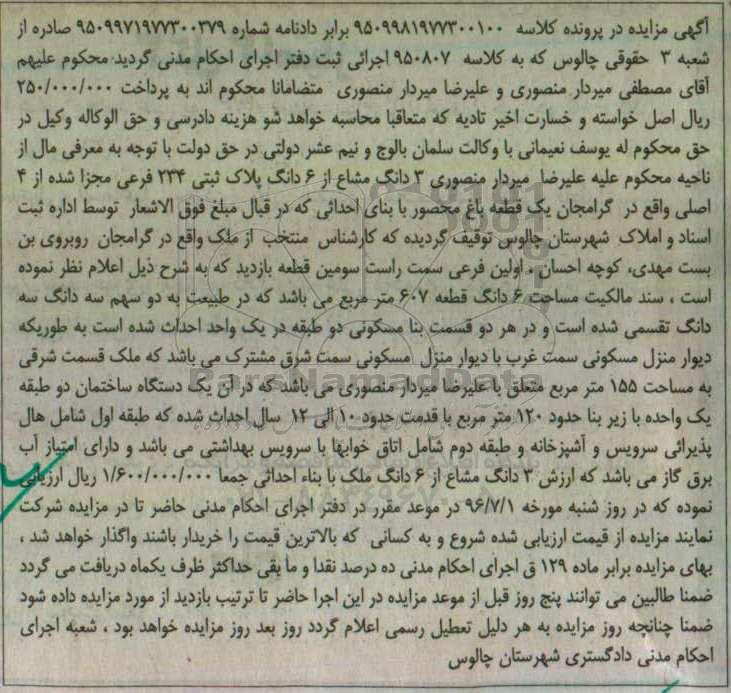 آگهی مزایده در پرونده کلاسه ۹۵۰۹۹۸۱۹۷۷۳۰۰۱۰۰ برابر دادنامه شماره ۹۵۰۹۹۷۱۹۷۷۳۰۰۳۷۹ صادره از
شعبه ۳ حقوقی چالوس که به کلاسه ۹۵۰۸۰۷ اجرائی ثبت دفتر اجرای احکام مدنی گردید محکوم علیهم
آقای مصطفی میردار منصوری و علیرضا میردار منصوری متضامانا محکوم اند به پرداخت ۲۵۰/۰۰۰/۰۰۰
ریال اصل خواسته و خسارت اخیر تادیه که متعاقبا محاسبه خواهد شو هزینه دادرسی و حق الوکاله وکیل در
حق محکوم له یوسف نعیمانی با وکالت سلمان بالوج و نیم عشر دولتی در حق دولت با توجه به معرفی مال از
ناحیه محکوم علیه علیرضا میردار منصوری ۳ دانگ مشاع از ۶ دانگ پلاک ثبتی ۲۳۴ فرعی مجزا شده از ۴
اصلی واقع در گرامجان یک قطعه باغ محصور با بنای احداثی که در قبال مبلغ فوق الاشعار توسط اداره ثبت
اسناد و املاک شهرستان چالوس توقیف گردیده که کارشناس منتخب از ملک واقع در گرامجان روبروی بن
بست مهدی، کوچه احسان ، اولین فرعی سمت راست سومین قطعه بازدید که به شرح ذیل اعلام نظر نموده
است ، سند مالکیت مساحت ۶ دانگ قطعه ۶۰۷ متر مربع می باشد که در طبیعت به دو سهم سه دانگ سه
دانگ تقسمی شده است و در هر دو قسمت بنا مسکونی دو طبقه در یک واحد احداث شده است به طوریکه
دیوار منزل مسکونی سمت غرب با دیوار منزل مسکونی سمت شرق مشترک می باشد که ملک قسمت شرقی
به مساحت ۱۵۵ متر مربع متعلق با علیرضا میردار منصوری می باشد که در آن یک دستگاه ساختمان دو طبقه
یک واحده با زیر بنا حدود ۱۲۰ متر مربع با قدمت حدود ۱۰ الی ۱۲ سال احداث شده که طبقه اول شامل هال
پذیرائی سرویس و آشپزخانه و طبقه دوم شامل اتاق خوابها با سرویس بهداشتی می باشد و دارای امتیاز آب
برق گاز می باشد که ارزش ۳ دانگ مشاع از ۶ دانگ ملک با بناء احداثی جمعا ۱/۶۰۰/۰۰۰/۰۰۰ ریال ارزیابی
نموده که در روز شنبه مورخه ۹۶/۷/۱ در موعد مقرر در دفتر اجرای احکام مدنی حاضر تا در مزایده شرکت
نمایند مزایده از قیمت ارزیابی شده شروع و به کسانی که بالاترین قیمت را خریدار باشند واگذار خواهد شد ،
بهای مزایده برابر ماده ۱۲۹ ق اجرای احکام مدنی ده درصد نقدا و ما بقی حداکثر ظرف یکماه دریافت می گردد
ضمنا طالبین می توانند پنج روز قبل از موعد مزایده در این اجرا حاضر تا ترتیب بازدید از مورد مزایده داده شود
ضمنا چنانچه روز مزایده به هر دلیل تعطیل رسمی اعلام گردد روز بعد روز مزایده خواهد بود ، شعبه اجرای
احکام مدنی دادگستری شهرستان چالوس
ParsNamadData